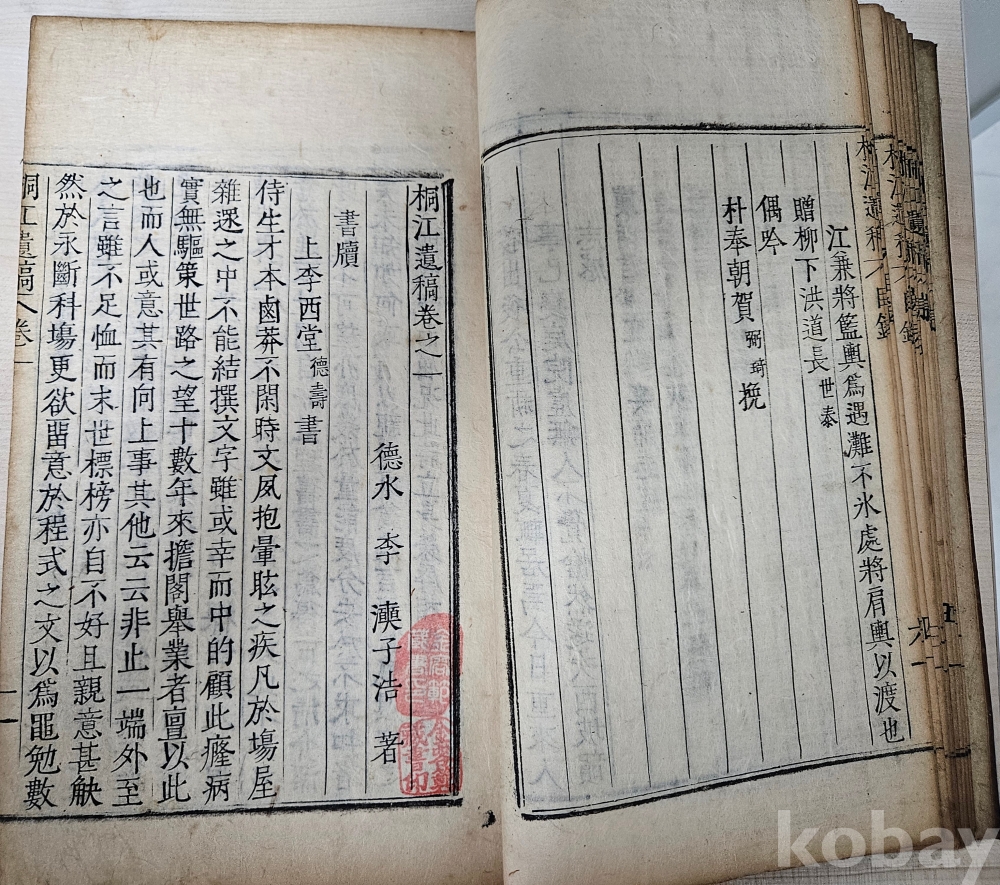 江兼將籃輿爲遇灘不氷處將肩輿以渡也
贈柳下洪道長世泰
偶吟
朴奉朝賀弼琦挽
桐江遺稿卷之一
德水 李 㵢子浩 著
書牘
上李西堂德壽書
侍生才本鹵莽不閑時文夙抱暈眩之疾凡於塲屋
雜遝之中不能結撰文字雖或幸而中的顧此癃病
實無驅策世路之望十數年來擔閣舉業者亶以此
也而人或意其有向上事其他云云非止一端外至
之言雖不足恤而末世標榜亦自不好且親意甚觖
然於永斷科塲更欲留意於程式之文以爲黽勉數
桐江遺稿 卷一
一
藏書印
kobay